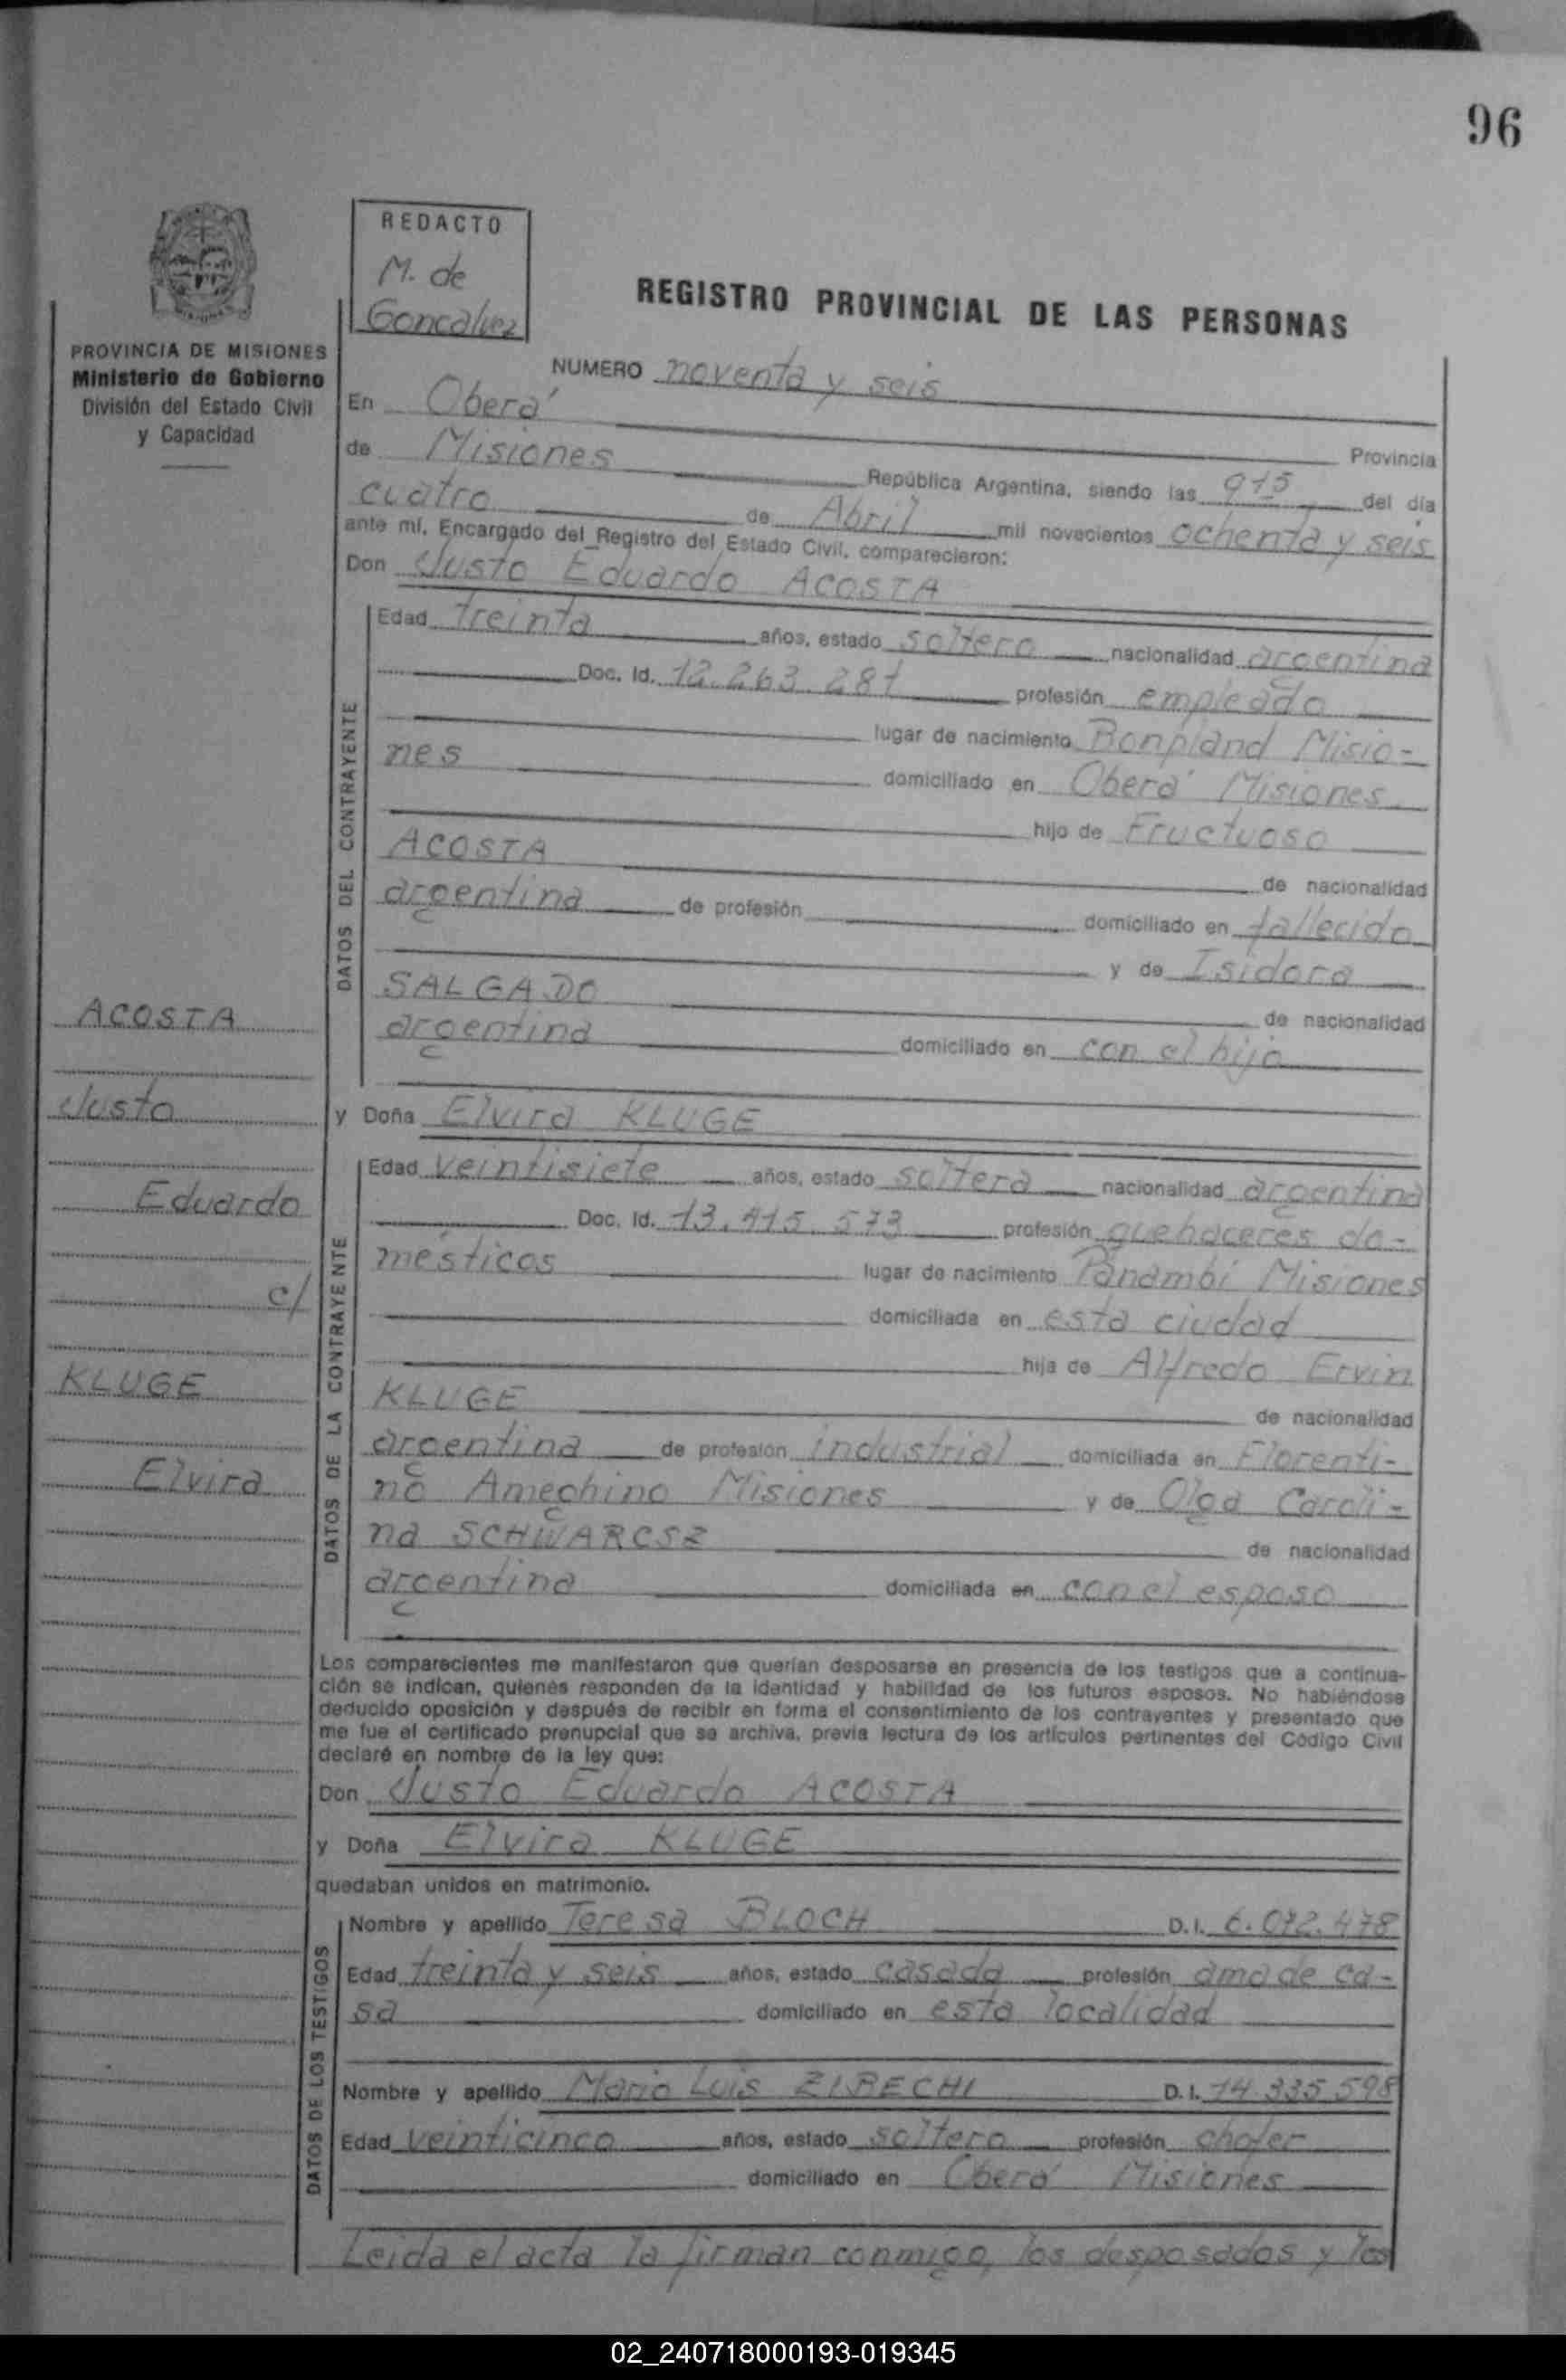 96
REDACTO
M. de
Goncalvez
REGISTRO PROVINCIAL DE LAS PERSONAS
PROVINCIA DE MISIONES
Ministerio de Gobierno
División del Estado Civil
y Capacidad
NUMERO noventa y seis
En Oberá
Provincia
de Misiones República Argentina, siendo las 9 15 del día
cuatro de Abril mil novecientos ochenta y seis
ante mí, Encargado del Registro del Estado Civil, comparecieron:
Don Justo Eduardo ACOSTA
DATOS DEL CONTRAYENTE
Edad treinta años, estado soltero nacionalidad argentina
Doc. Id. 12.263.281 profesión empleado
lugar de nacimiento Bonpland Misio-
nes domiciliado en Oberá Misiones.
hijo de Fructuoso
ACOSTA de nacionalidad
argentina de profesión domiciliado en fallecido
y de Isidora
SALGADO de nacionalidad
argentina domiciliado en con el hijo
ACOSTA
Justo
Eduardo
c/
KLUGE
Elvira
y Doña Elvira KLUGE
DATOS DE LA CONTRAYENTE
Edad veintisiete años, estado soltera nacionalidad argentina
Doc. Id. 13.415.573 profesión quehaceres do-
mésticos lugar de nacimiento Panambí Misiones
domiciliada en esta ciudad
hija de Alfredo Ervin
KLUGE de nacionalidad
argentina de profesión industrial domiciliada en Florenti-
no Ameghino Misiones y de Olga Caroli-
na SCHWARCSZ de nacionalidad
argentina domiciliada en con el esposo
Los comparecientes me manifestaron que querían desposarse en presencia de los testigos que a continua-
ción se indican, quienes responden de la identidad y habilidad de los futuros esposos. No habiéndose
deducido oposición y después de recibir en forma el consentimiento de los contrayentes y presentado que
me fue el certificado prenupcial que se archiva, previa lectura de los artículos pertinentes del Código Civil
declaré en nombre de la ley que:
Don Justo Eduardo ACOSTA
y Doña Elvira KLUGE
quedaban unidos en matrimonio.
DATOS DE LOS TESTIGOS
Nombre y apellido Teresa BLOCH D.I. 6.072.478
Edad treinta y seis años, estado casada profesión ama de ca-
sa domiciliado en esta localidad
Nombre y apellido Mario Luis ZIBECHI D.I. 14.335.598
Edad veinticinco años, estado soltero profesión chofer
domiciliado en Oberá Misiones
Leida el acta la firman conmigo, los desposados y los
02_240718000193-019345